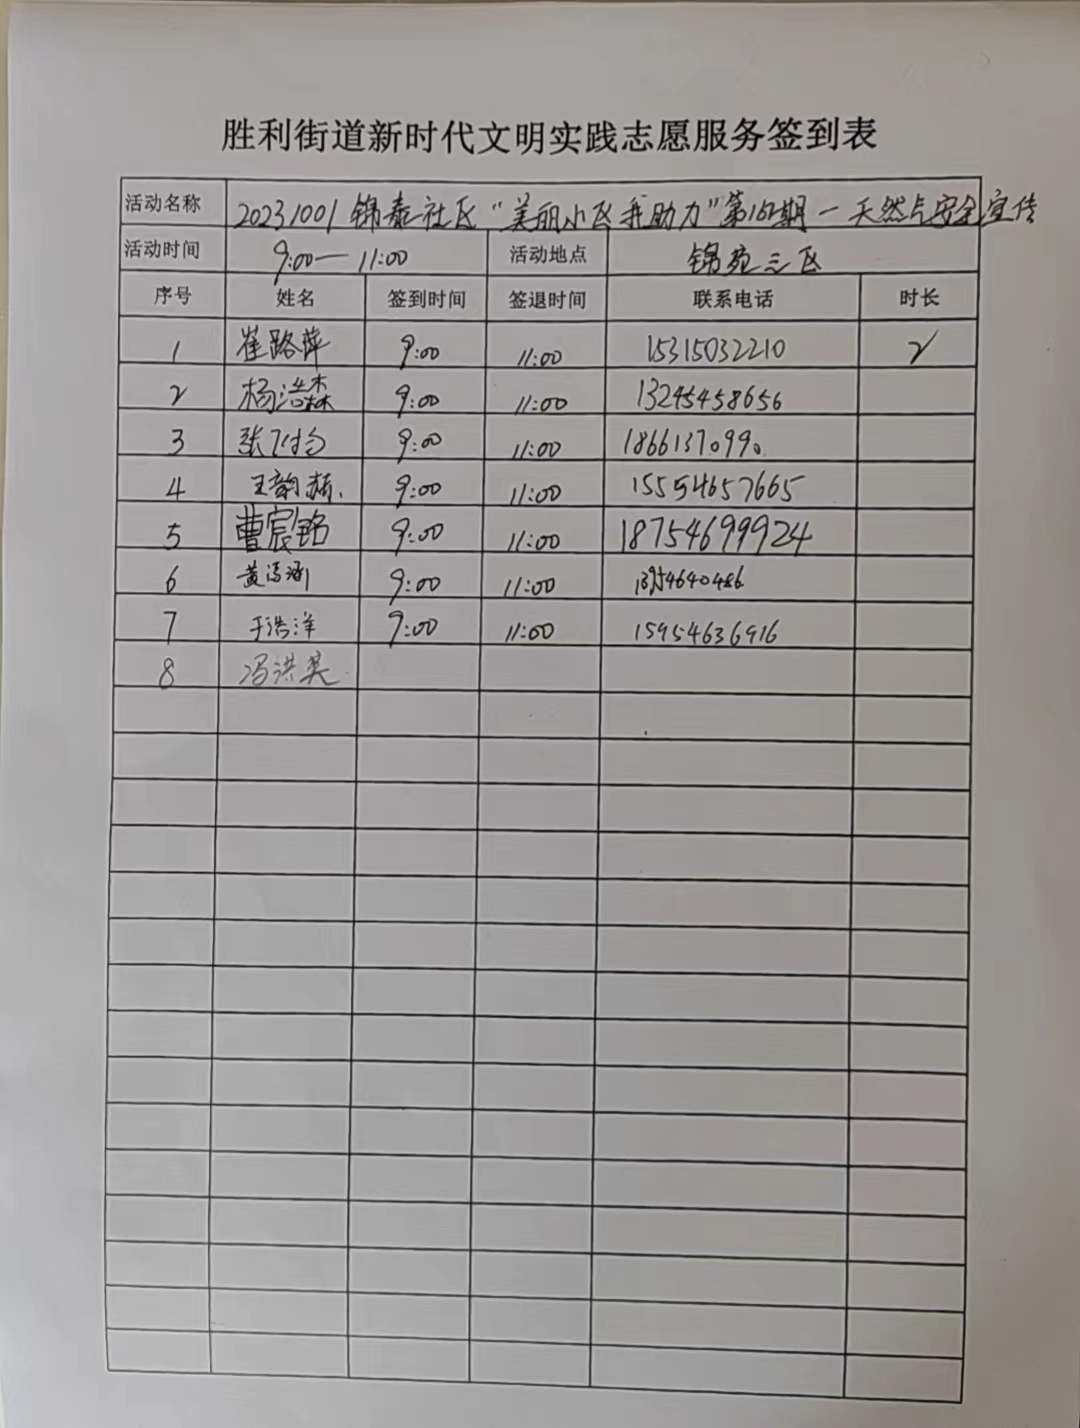 胜利街道新时代文明实践志愿服务签到表
活动名称 20231001锦泰社区“美丽小区我助力”第162期—天然气安全宣传
活动时间 9:00—11:00 活动地点 锦苑三区
序号 姓名 签到时间 签退时间 联系电话 时长
1 崔路萍 9:00 11:00 15315032210 2
2 杨浩森 9:00 11:00 13245458656
3 张 9:00 11:00 18661370990
4 王韵赫 9:00 11:00 15554657665
5 曹宸铭 9:00 11:00 18754699924
6 黄涵 9:00 11:00 13954640486
7 于浩洋 9:00 11:00 15954636916
8 冯洪英